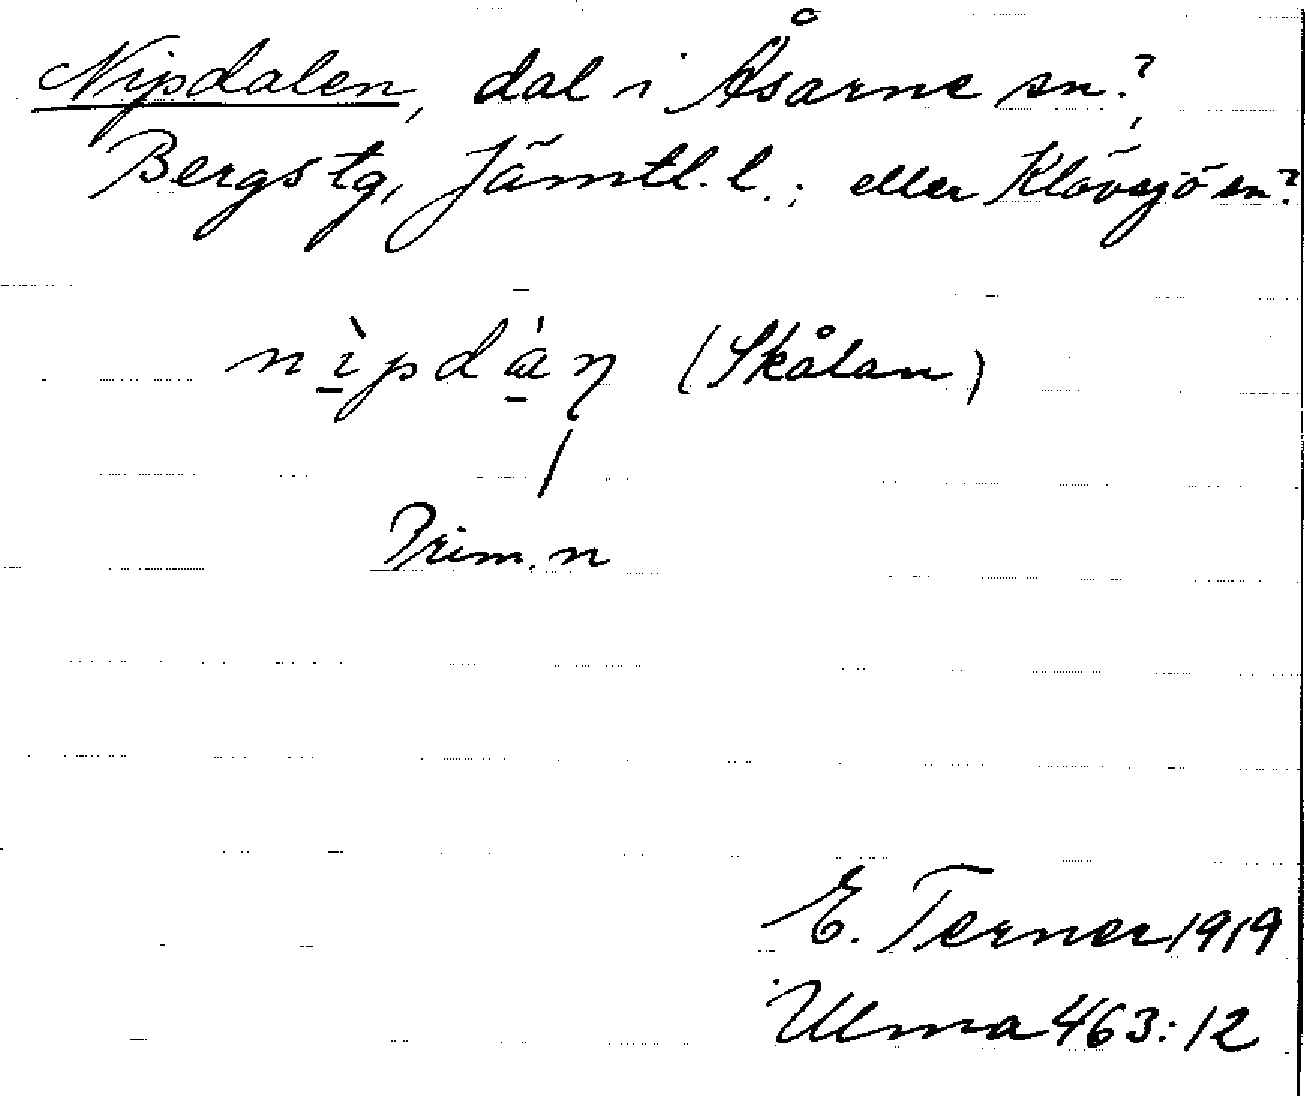 Nipdalen, dal i Åsarne sn.?,
Bergs tg, Jämtl. l.; eller Klövsjö sn?
nı̱̀pdά̱ŋ (Skålan)
Prim. n
E. Terner 1919
Ulma 463:12